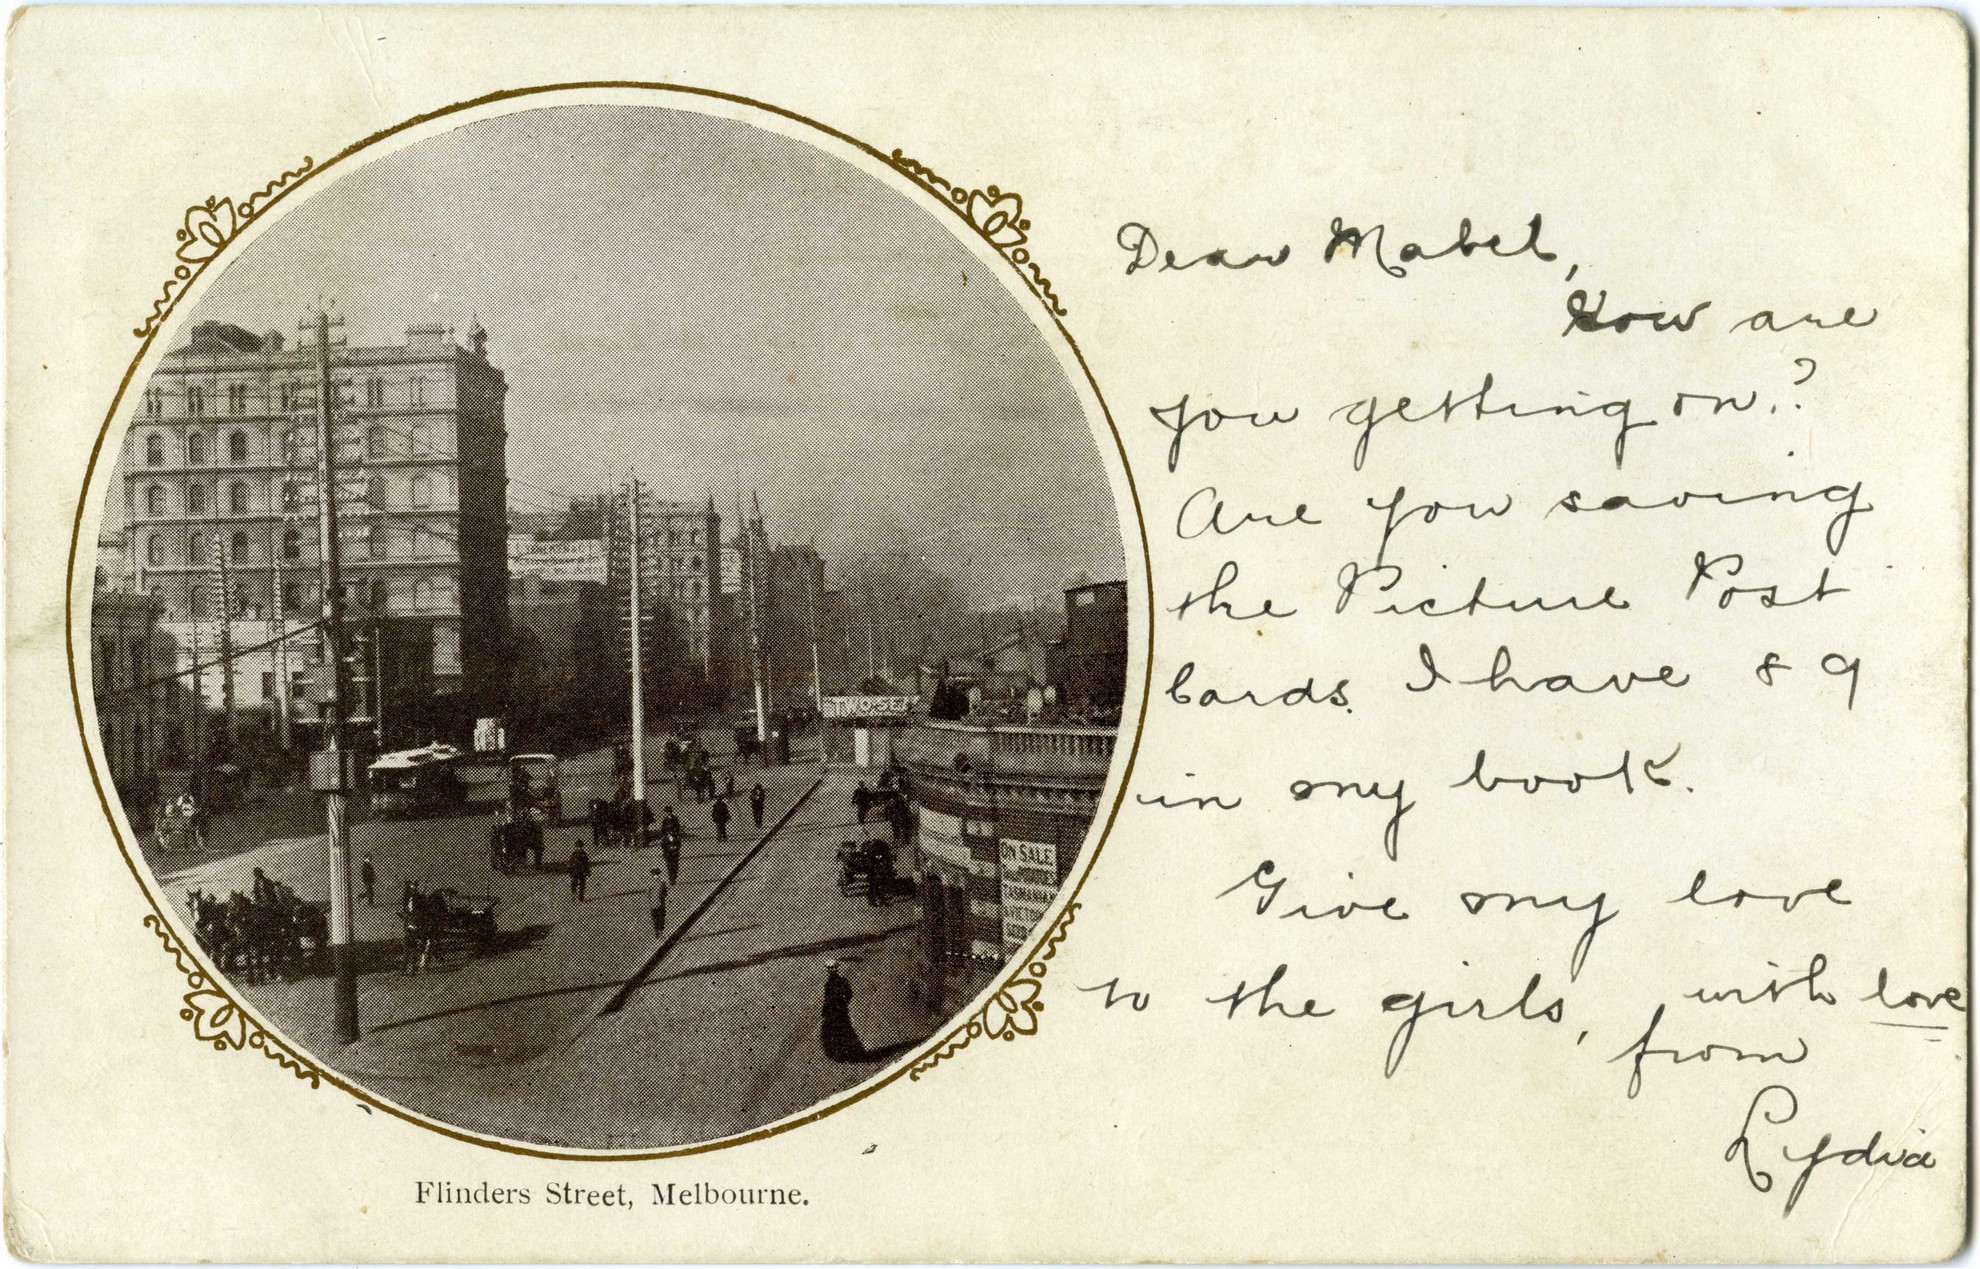 Dear Mabel,
How are
you getting on?
Are you saving
the Picture Post
Cards. I have 89
in my book.
Give my love
to the girls, with love
from
Lydia
TWO-SE
ON SALE
TASMANIAN
& VICTOR
Flinders Street, Melbourne.